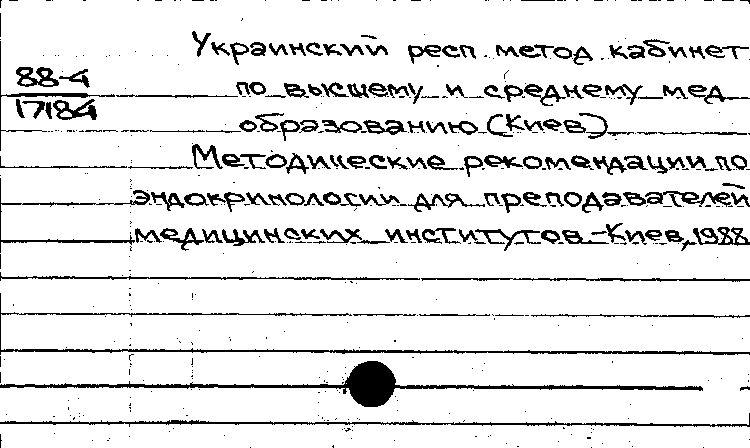 Украинский респ. метод. кабинет
88-4
17184
по высшему и среднему мед.
образованию (Киев).
Методические рекомендации по
эндокринологии для преподавателей
медицинских институтов.-Киев, 1988